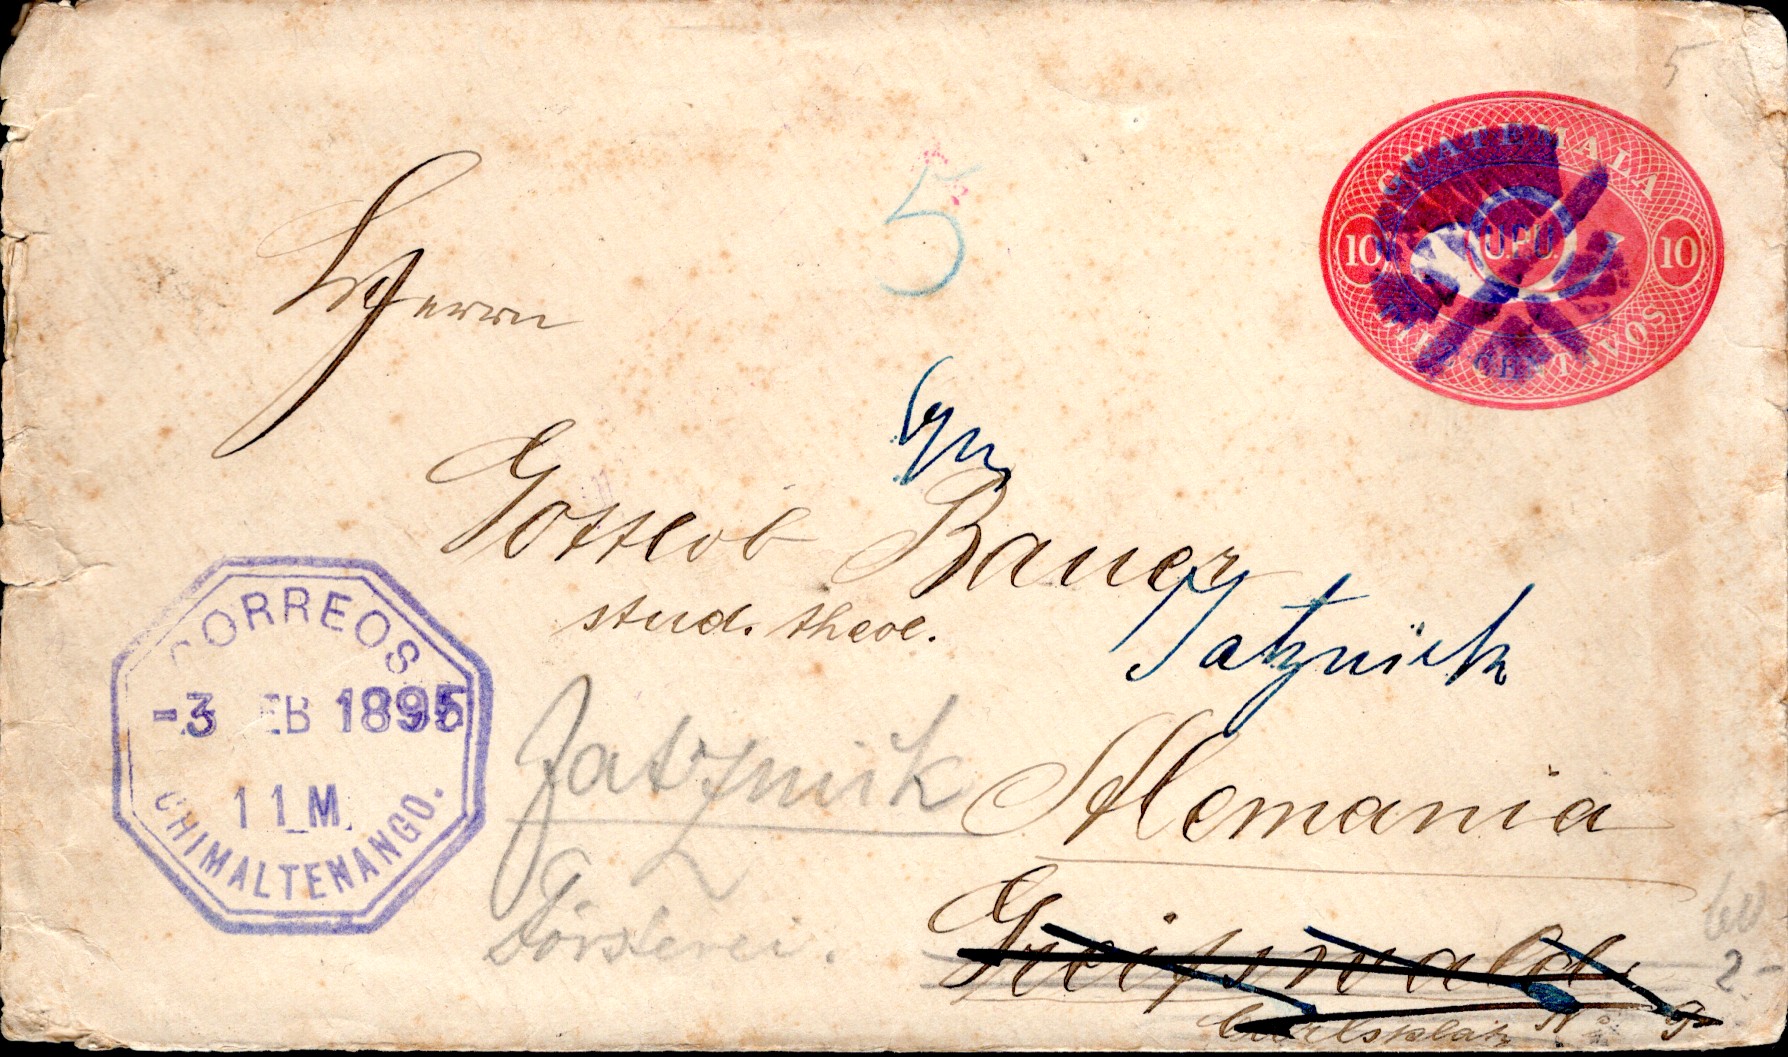 5
GUATEMALA
10 U.P.U. 10
DIEZ CENTAVOS
5
Herrn
Gottlob Bauer
stud. theol.
Jatznick
CORREOS
-3 FEB 1895
11 M.
CHIMALTENANGO.
Jatznick
Försterei.
Alemania
Greifswald
Carlsplatz
2-